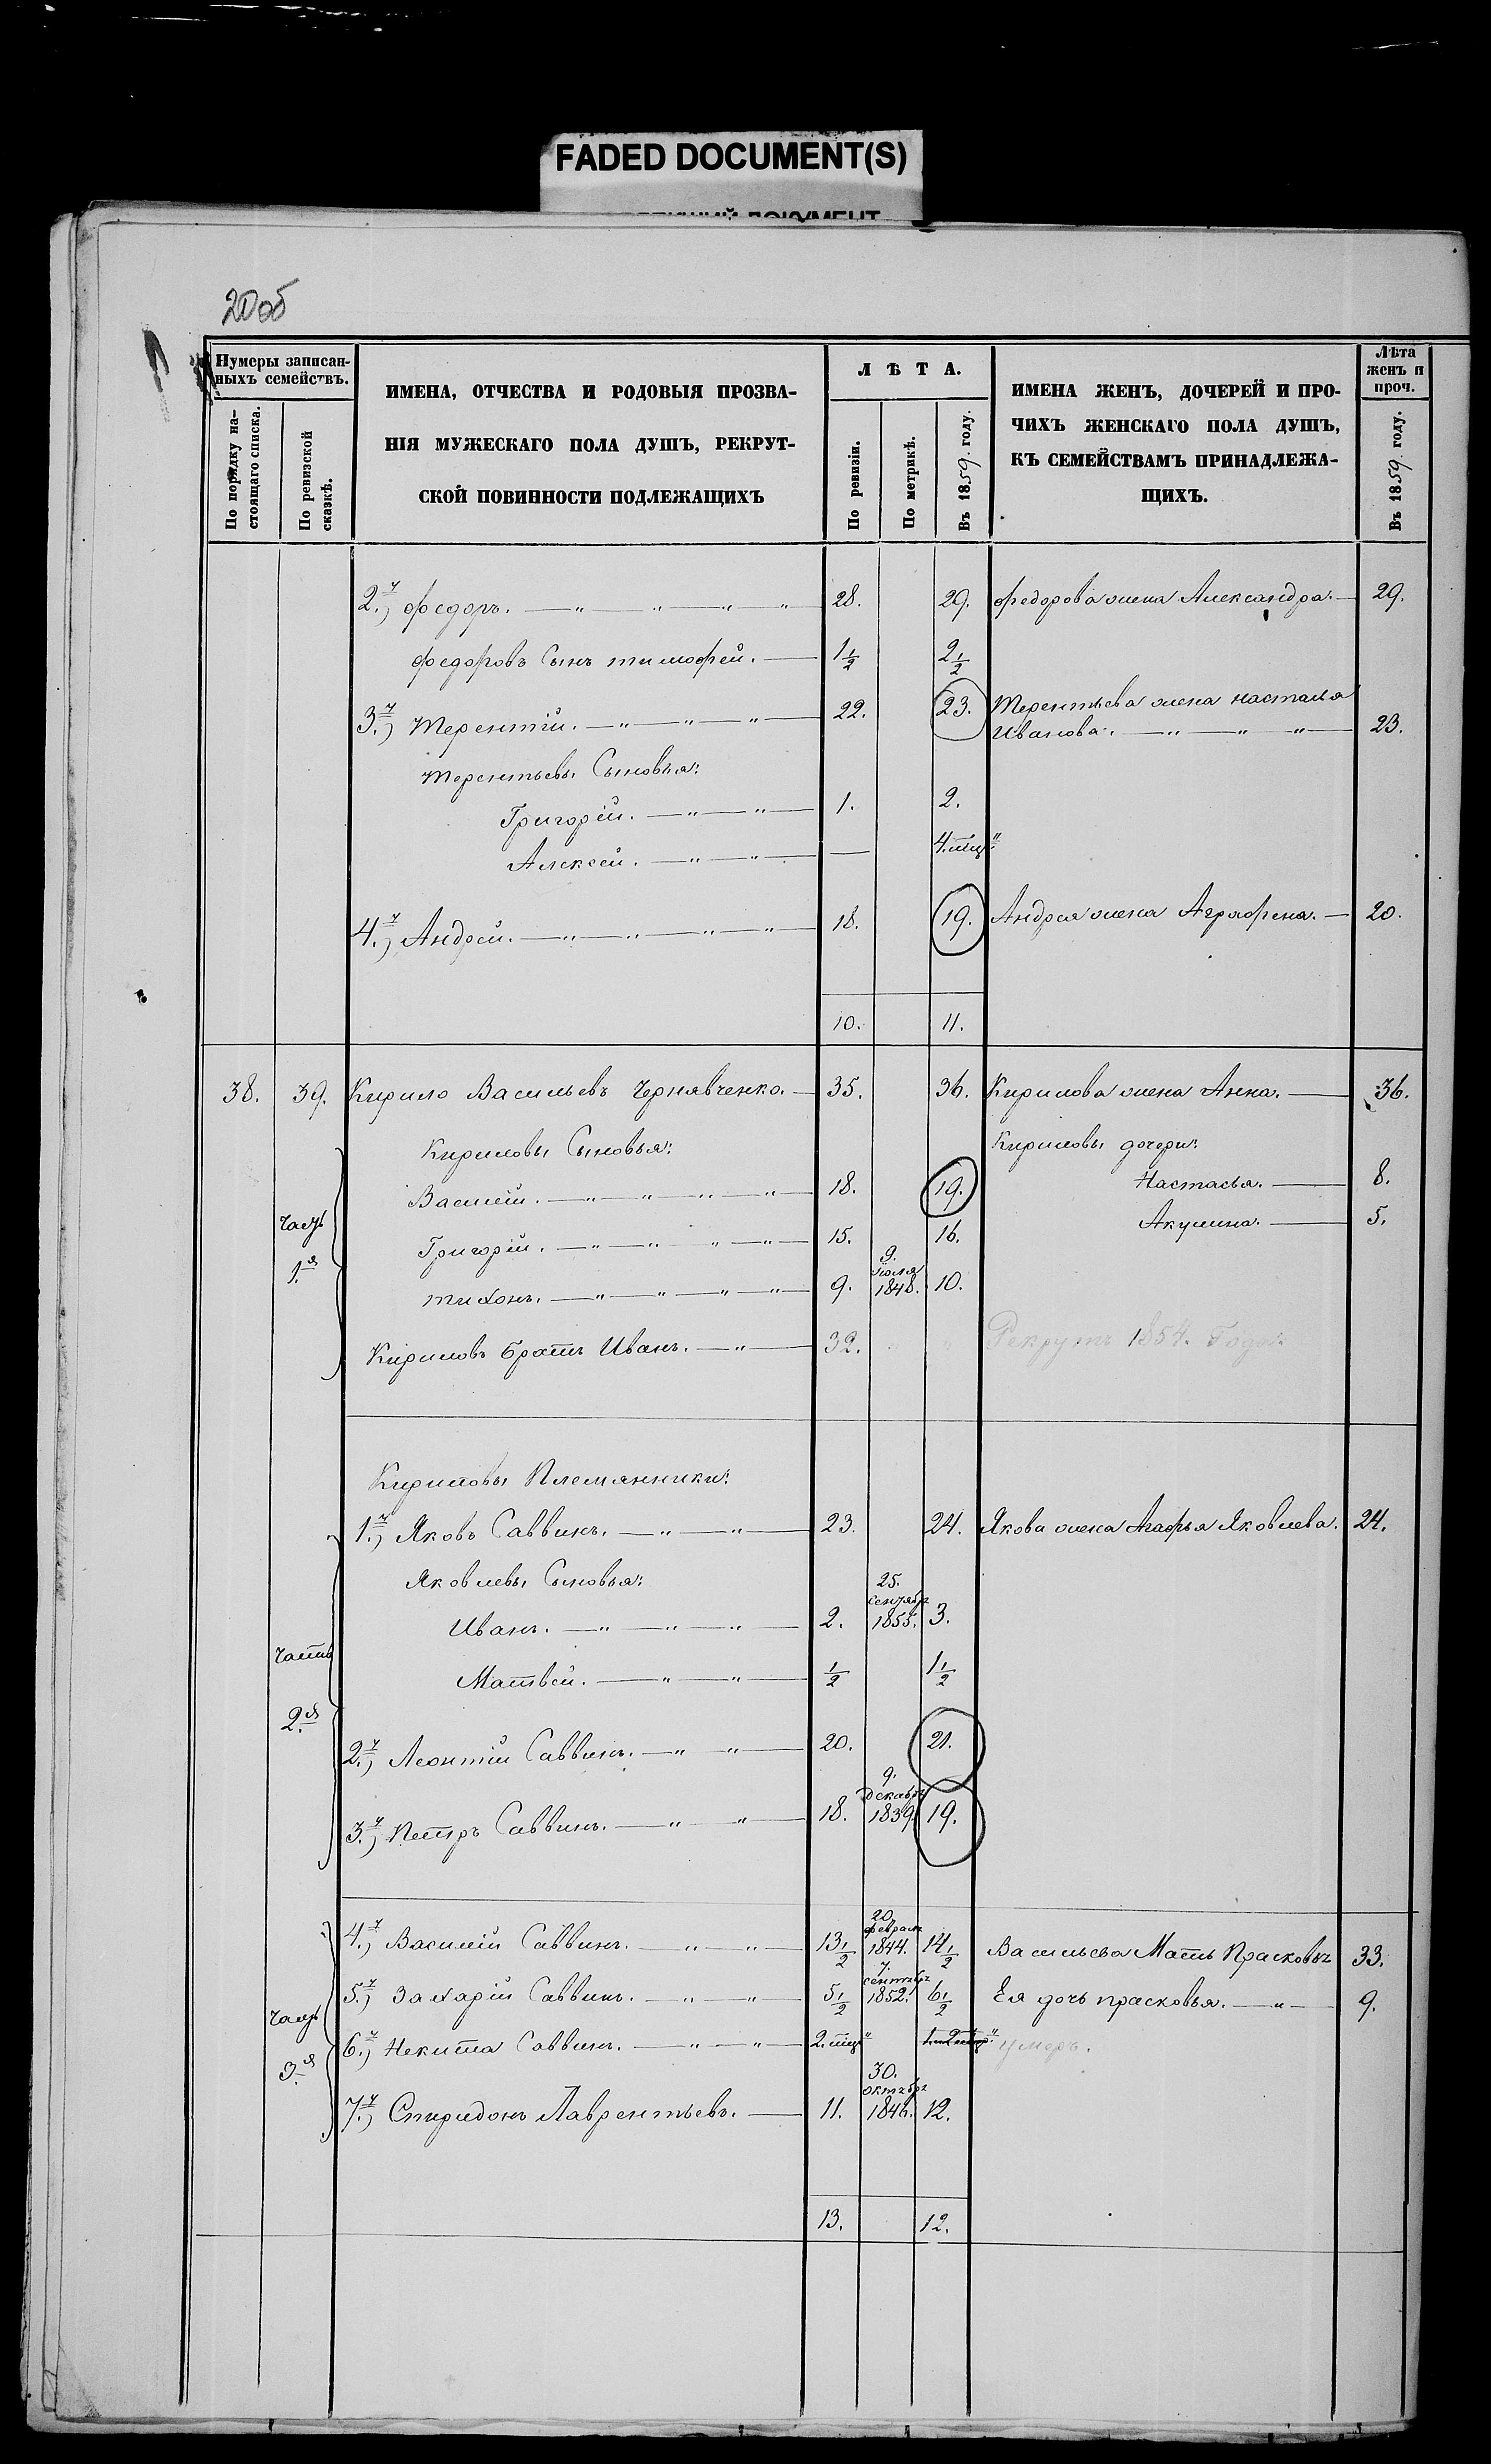 FADED DOCUMENT(S)
20об
Нумеры записан-
ныхъ семействъ.
По порядку на-
стоящаго списка.
По ревизской
сказкѣ.
ИМЕНА, ОТЧЕСТВА И РОДОВЫЯ ПРОЗВА-
НІЯ МУЖЕСКАГО ПОЛА ДУШЪ, РЕКРУТ-
СКОЙ ПОВИННОСТИ ПОДЛЕЖАЩИХЪ
ЛѢТА.
По ревизіи.
По метрикѣ.
Въ 1859. году.
ИМЕНА ЖЕНЪ, ДОЧЕРЕЙ И ПРО-
ЧИХЪ ЖЕНСКАГО ПОЛА ДУШЪ,
КЪ СЕМЕЙСТВАМЪ ПРИНАДЛЕЖА-
ЩИХЪ.
Лѣта
женъ и
проч.
Въ 1859. году.
2.й) федоръ. — „ — „ — „ — „ 28. 29. федорова жена Александра. — 29.
федоровъ Сынъ тимофей. — 1½ 2½
3.й) Терентій. — „ — „ — „ — 22. 23. Терентьева жена настасья
Иванова. — „ — „ — „ — 23.
Терентьевы Сыновья:
Григорій. — „ — „ — 1. 2.
Алексей. — „ — „ — — 4.мцъ
4.й) Андрей. — „ — „ — „ — „ — 18. 19. Андрея жена Аграфена. — 20.
10. 11.
38. 39. Кирило Васильевъ Чернявченко. — 35. 36. Кирилова жена Анна. — 36.
Кириловы Сыновья: Кириловы дочери:
Василій. — „ — „ — „ — „ — 18. 19. Настасья. — 8.
Часть Григорій. — „ — „ — „ — „ — 15. 16. Акулина. — 5.
1.я тихонъ. — „ — „ — „ — „ — 9. 9. Іюля 1848. 10.
Кириловъ братъ Иванъ. — „ — 32. Рекрутъ 1854. Года.
Кириловы Племянники:
1.й) Яковъ Саввинъ. — „ — „ — 23. 24. Якова жена Агафья Яковлева. 24.
Яковлевы Сыновья:
Иванъ. — „ — „ — „ — 2. 25. сентября 1855. 3.
Часть Матвей. — „ — „ — ½ 1½
2.я
2.й) Леонтій Саввинъ. — „ — „ — 20. 21.
3.й) Петръ Саввинъ. — „ — „ — 18. 9. Декабря 1839. 19.
4.й) Василій Саввинъ. — „ — „ — 13½ 20. февраля 1844. 14½ Васильева Мать Прасковья 33.
5.й) Захарій Саввинъ. — „ — „ — 5½ 7. сентября 1852. 6½ Ея дочь прасковья. — „ — 9.
Часть 6.й) Некита Саввинъ. — „ — „ — 2.мцъ умеръ.
3.я
7.й) Спиридонъ Лаврентьевъ. — 11. 30. октября 1846. 12.
13. 12.